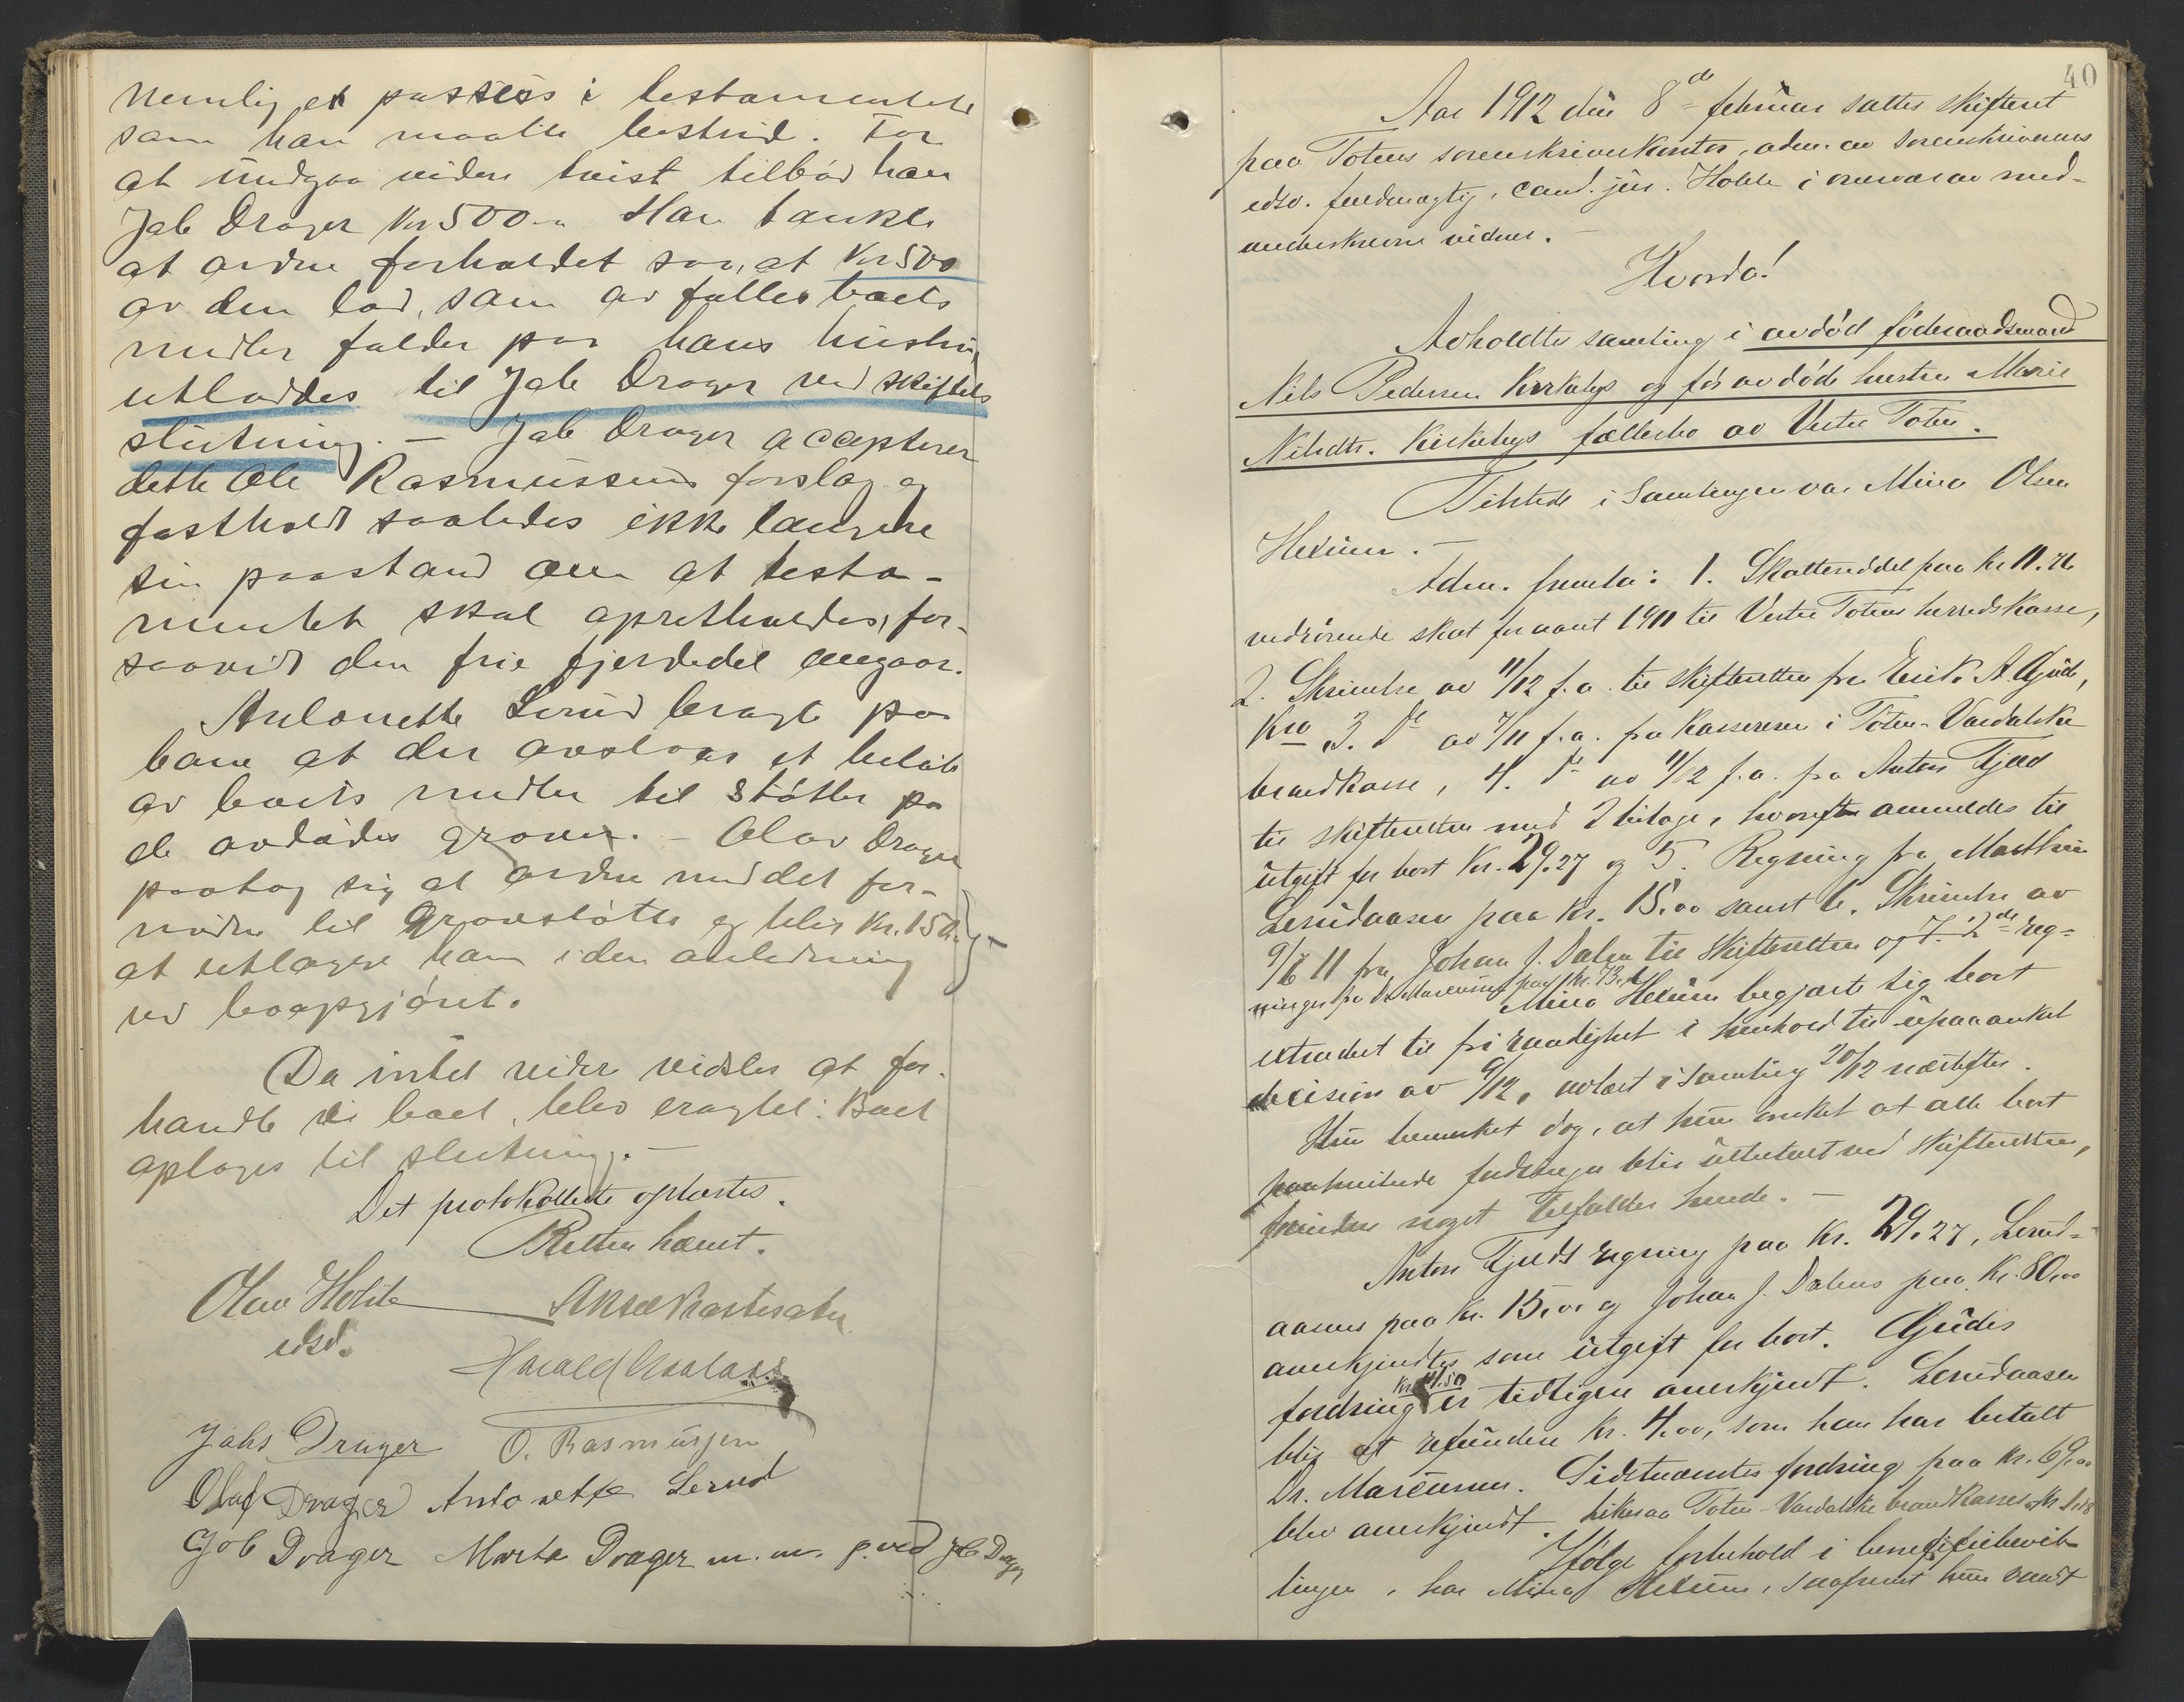 nemlig et passus i testamentet
som han maatte bestrid. For
at undgaa viden tvist tilbød han
Jab Drager kr 500.- Han tænkte
at ordne forholdet saa, at kr 500
av den lod, som av fælles boets
midler falder paa hans hustru
utloddes til Jab Drager ved skiftets
slutning. — Jab Drager accepterer
dette Ole Rasmussens forslag og
fastholdt saaledes ikke længere
sin paastand om at testa-
mentet skal opretholdes, for-
saavidt den frie fjerdedel angaar.
Antonette Lerud bragte paa
bane at der avsloges et beløb
av boets midler til støtter paa
de avdødes graver. — Olav Drager
paatog sig at ordne med det for-
nødne til gravstøtte og blir kr. 150
at utlægge ham i den anledning
ved boopgjøret.
Da intet videre vidstes at for-
handle i boet, blev eragtet: Boet
optages til slutning. —
Det protokollerte oplæstes.
Retten hævet.
Olav Holte Aksel
edsv.
Harald
Jahs Drager O. Rasmussen
Olaf Drager Antonette Lerud
Job Drager Marta Drager m. m. p. ved Job Drager
40
Aar 1912 den 8de februar sattes skifteret
paa Totens sorenskriverkontor, adm. av sorenskriverens
edsv. fuldmægtig, cand. jur. Holte i overvær av med-
underskrevne vidner. —
Hvorda!
Avholdtes samling i avdød føderaadsmand
Nils Pedersen Kirkebys og før avdøde hustru Marie
Nilsdtr. Kirkebys fællesbo av Vestre Toten.
Tilstede i samlingen var Mina Olsen
Hexum. —
Adm. fremla: 1. Skatteseddel paa kr 11.76
vedrørende skat for aaret 1911 til Vestre Totens herredskasse,
2. Skrivelse av 11/12 f. a. til skifteretten fra Erik A. Gjude,
3. Do av 7/11 f. a. fra kassereren i Toten-Vardalske
brandkasse, 4. Do av 11/12 f. a. fra Anton Fjeld
til skifteretten med 2 bilage, hvorefter anmeldes til
utgift for boet kr. 29.27 og 5. Regning fra Mathias
Lerudaasen paa kr. 15.00 samt 6. Skrivelse av
9/6 11 fra Johan J. Dalen til skifteretten og 7. 2de reg-
ninger fra Dr. Marcussen paa kr. 73.
Mina Hexum begjærte sig boet
utradert til fri raadighet i henhold til upaaanket
decision av 9/12, avlæst i samling 20/12 næstefter.
Hun bemerket dog, at hun ønsket at alle boet
paahvilende fordringer blir utbetalt ved skifteretten,
forinden noget tilfaldes hende. —
Anton Fjelds regning paa kr. 29.27, Lerud-
aasens paa kr. 15.00 og Johan J. Dalens paa kr. 80.00
anerkjendtes som utgift for boet. Gjudes
fordring er tidligere anerkjendt. Lerudaasen
blir at refundere kr. 4.00, som han har betalt
Dr. Marcussen. Sidstnævntes fordring paa kr. 69.00
blev anerkjendt. Likesaa Toten-Vardalske brandkasses
Ifølge forbehold i beneficiebevil-
lingen, har Mina Hexum, saafremt hun